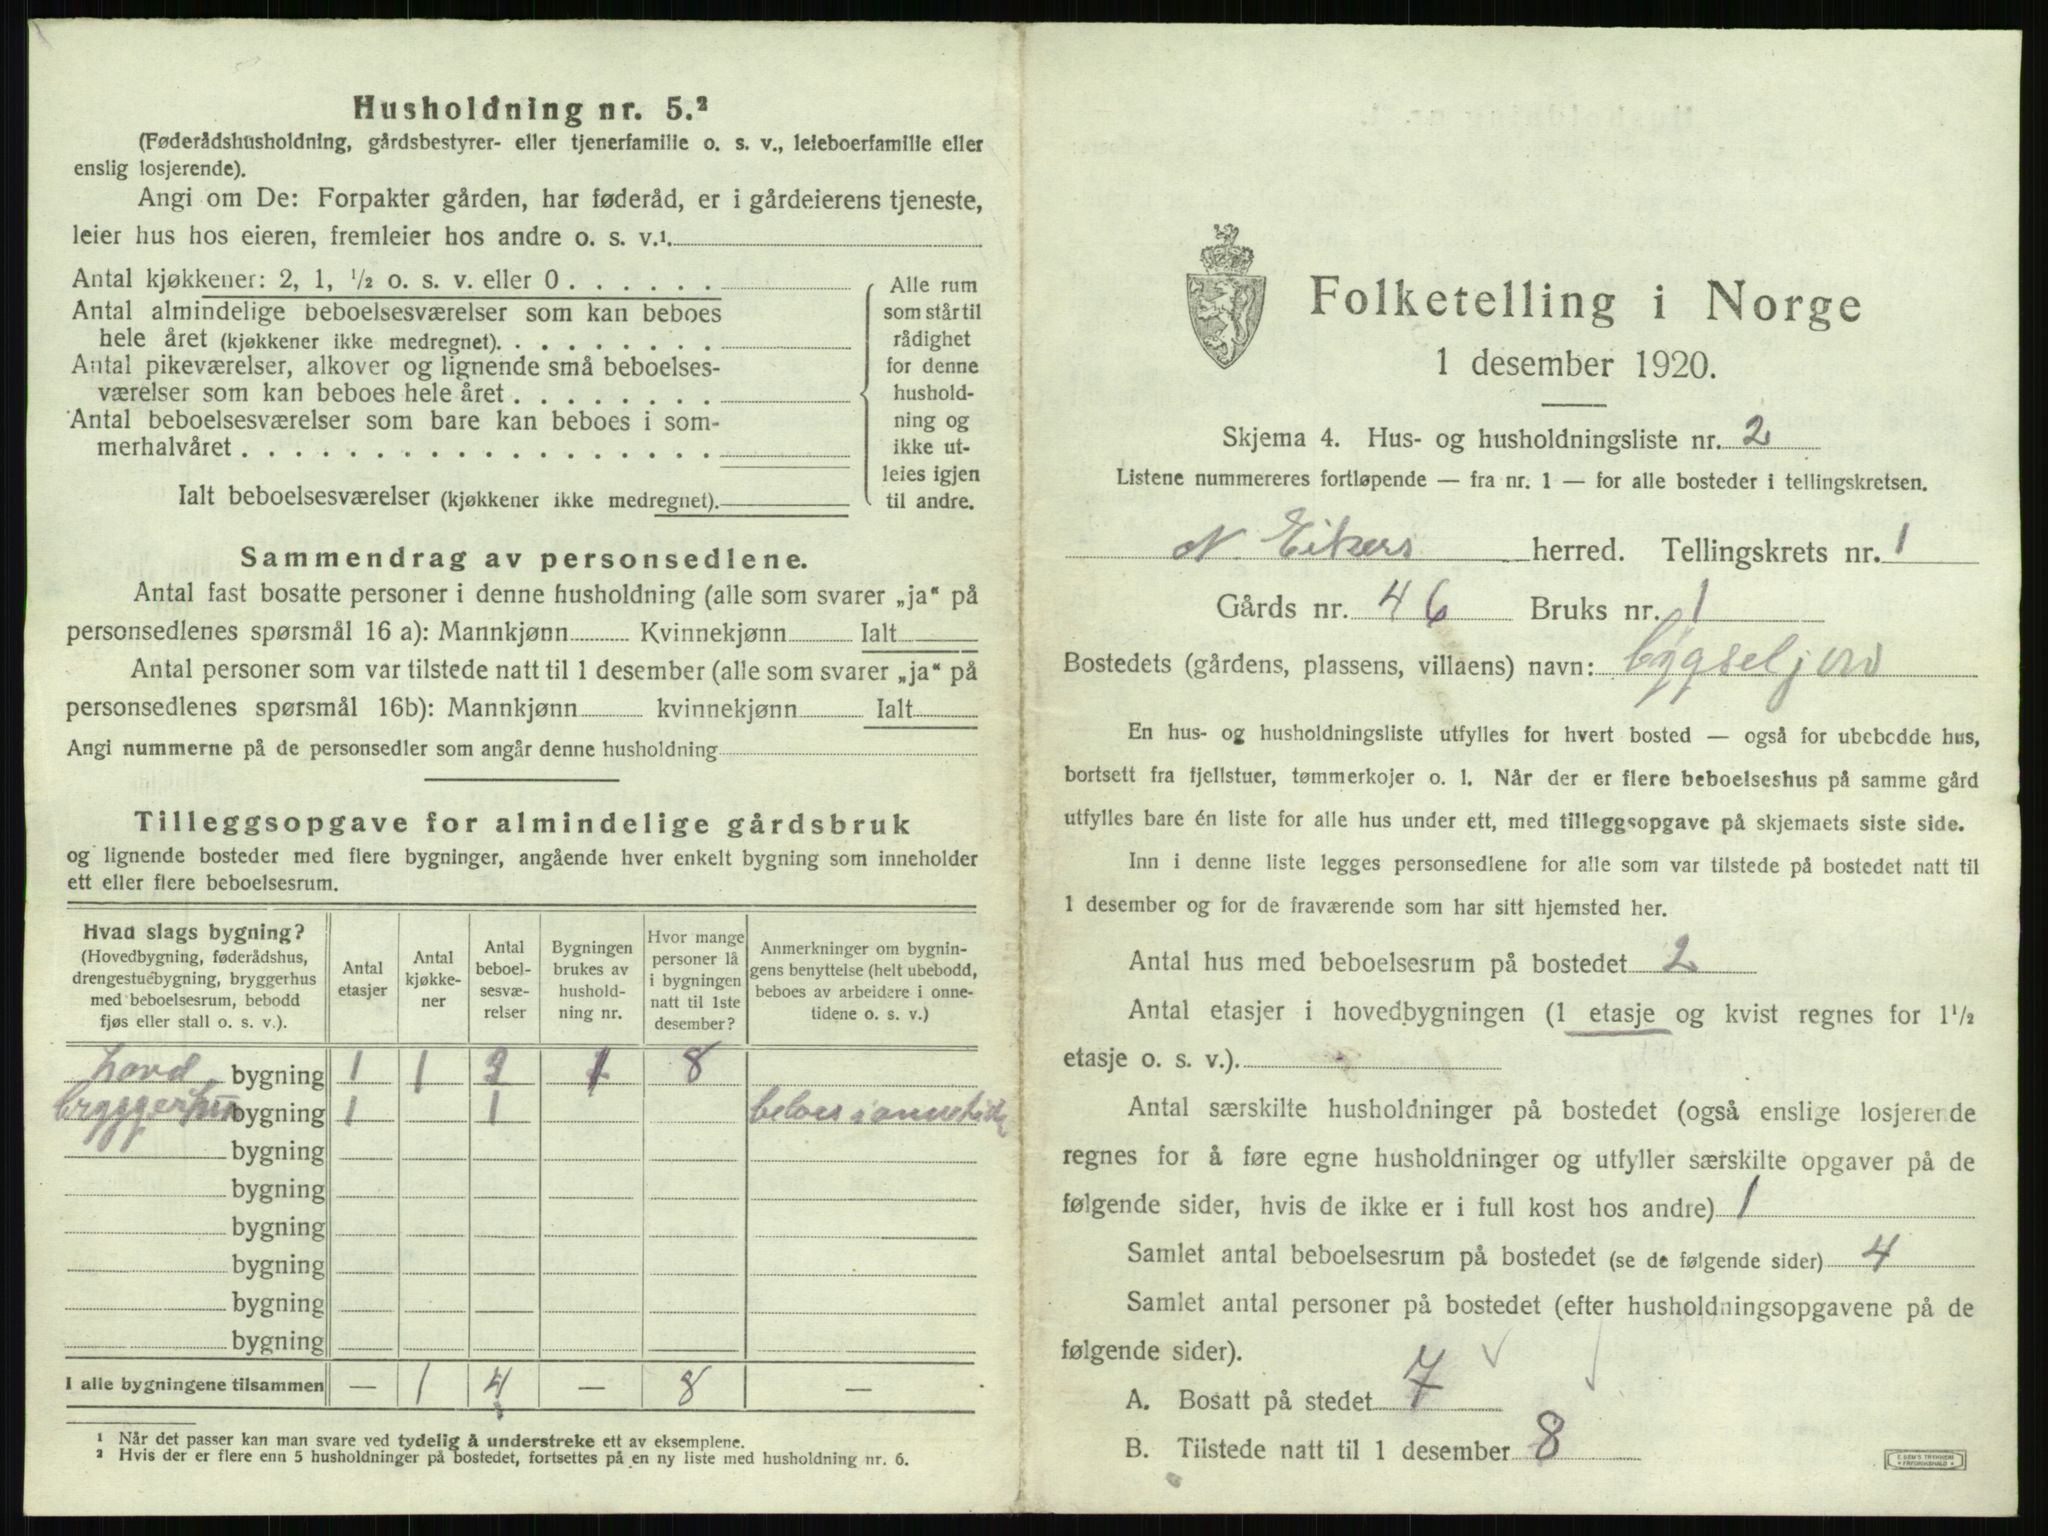 Husholdning nr. 5.²
(Føderådshusholdning, gårdsbestyrer- eller tjenerfamilie o. s. v., leieboerfamilie eller
enslig losjerende).
Angi om De: Forpakter gården, har føderåd, er i gårdeierens tjeneste,
leier hus hos eieren, fremleier hos andre o. s. v.¹.
Antal kjøkkener: 2, 1, ½ o. s. v. eller 0 . . . . . .
Antal almindelige beboelsesværelser som kan beboes
hele året (kjøkkener ikke medregnet). . . . . . . . .
Antal pikeværelser, alkover og lignende små beboelses-
værelser som kan beboes hele året . . . . . . . .
Antal beboelsesværelser som bare kan beboes i som-
merhalvåret . . . . . . . . . . . . . . . . . .
Ialt beboelsesværelser (kjøkkener ikke medregnet).
Alle rum
som står til
rådighet
for denne
hushold-
ning og
ikke ut-
leies igjen
til andre.
Sammendrag av personsedlene.
Antal fast bosatte personer i denne husholdning (alle som svarer „ja“ på
personsedlenes spørsmål 16 a): Mannkjønn Kvinnekjønn Ialt
Antal personer som var tilstede natt til 1 desember (alle som svarer „ja“ på
personsedlenes spørsmål 16b): Mannkjønn kvinnekjønn Ialt
Angi nummerne på de personsedler som angår denne husholdning
Tilleggsopgave for almindelige gårdsbruk
og lignende bosteder med flere bygninger, angående hver enkelt bygning som inneholder
ett eller flere beboelsesrum.
Hvad slags bygning?
(Hovedbygning, føderådshus,
drengestuebygning, bryggerhus
med beboelsesrum, bebodd
fjøs eller stall o. s. v.).
Antal
etasjer
Antal
kjøkke-
ner
Antal
beboel-
sesvæ-
relser
Bygningen
brukes av
hushold-
ning nr.
Hvor mange
personer lå
i bygningen
natt til 1ste
desember?
Anmerkninger om bygnin-
gens benyttelse (helt ubebodd,
beboes av arbeidere i onne-
tidene o. s. v.)
hovd bygning 1 1 3 1 8
bryggerhus bygning 1 1 beboes i onnetid
bygning
bygning
bygning
bygning
bygning
bygning
I alle bygningene tilsammen — 1 4 — 8 —
¹ Når det passer kan man svare ved tydelig å understreke ett av eksemplene.
² Hvis der er flere enn 5 husholdninger på bostedet, fortsettes på en ny liste med husholdning nr. 6.
Folketelling i Norge
1 desember 1920.
Skjema 4. Hus- og husholdningsliste nr. 2
Listene nummereres fortløpende — fra nr. 1 — for alle bosteder i tellingskretsen.
N. Eikers herred. Tellingskrets nr. 1
Gårds nr. 46 Bruks nr. 1
Bostedets (gårdens, plassens, villaens) navn:
En hus- og husholdningsliste utfylles for hvert bosted — også for ubebodde hus,
bortsett fra fjellstuer, tømmerkojer o. l. Når der er flere beboelseshus på samme gård
utfylles bare én liste for alle hus under ett, med tilleggsopgave på skjemaets siste side.
Inn i denne liste legges personsedlene for alle som var tilstede på bostedet natt til
1 desember og for de fraværende som har sitt hjemsted her.
Antal hus med beboelsesrum på bostedet 2
Antal etasjer i hovedbygningen (1 etasje og kvist regnes for 1½
etasje o. s. v.).
Antal særskilte husholdninger på bostedet (også enslige losjerende
regnes for å føre egne husholdninger og utfyller særskilte opgaver på de
følgende sider, hvis de ikke er i full kost hos andre) 1
Samlet antal beboelsesrum på bostedet (se de følgende sider) 4
Samlet antal personer på bostedet (efter husholdningsopgavene på de
følgende sider).
A. Bosatt på stedet 7
B. Tilstede natt til 1 desember 8
E. SEM'S TRYKKERI
FREDRIKSHALD